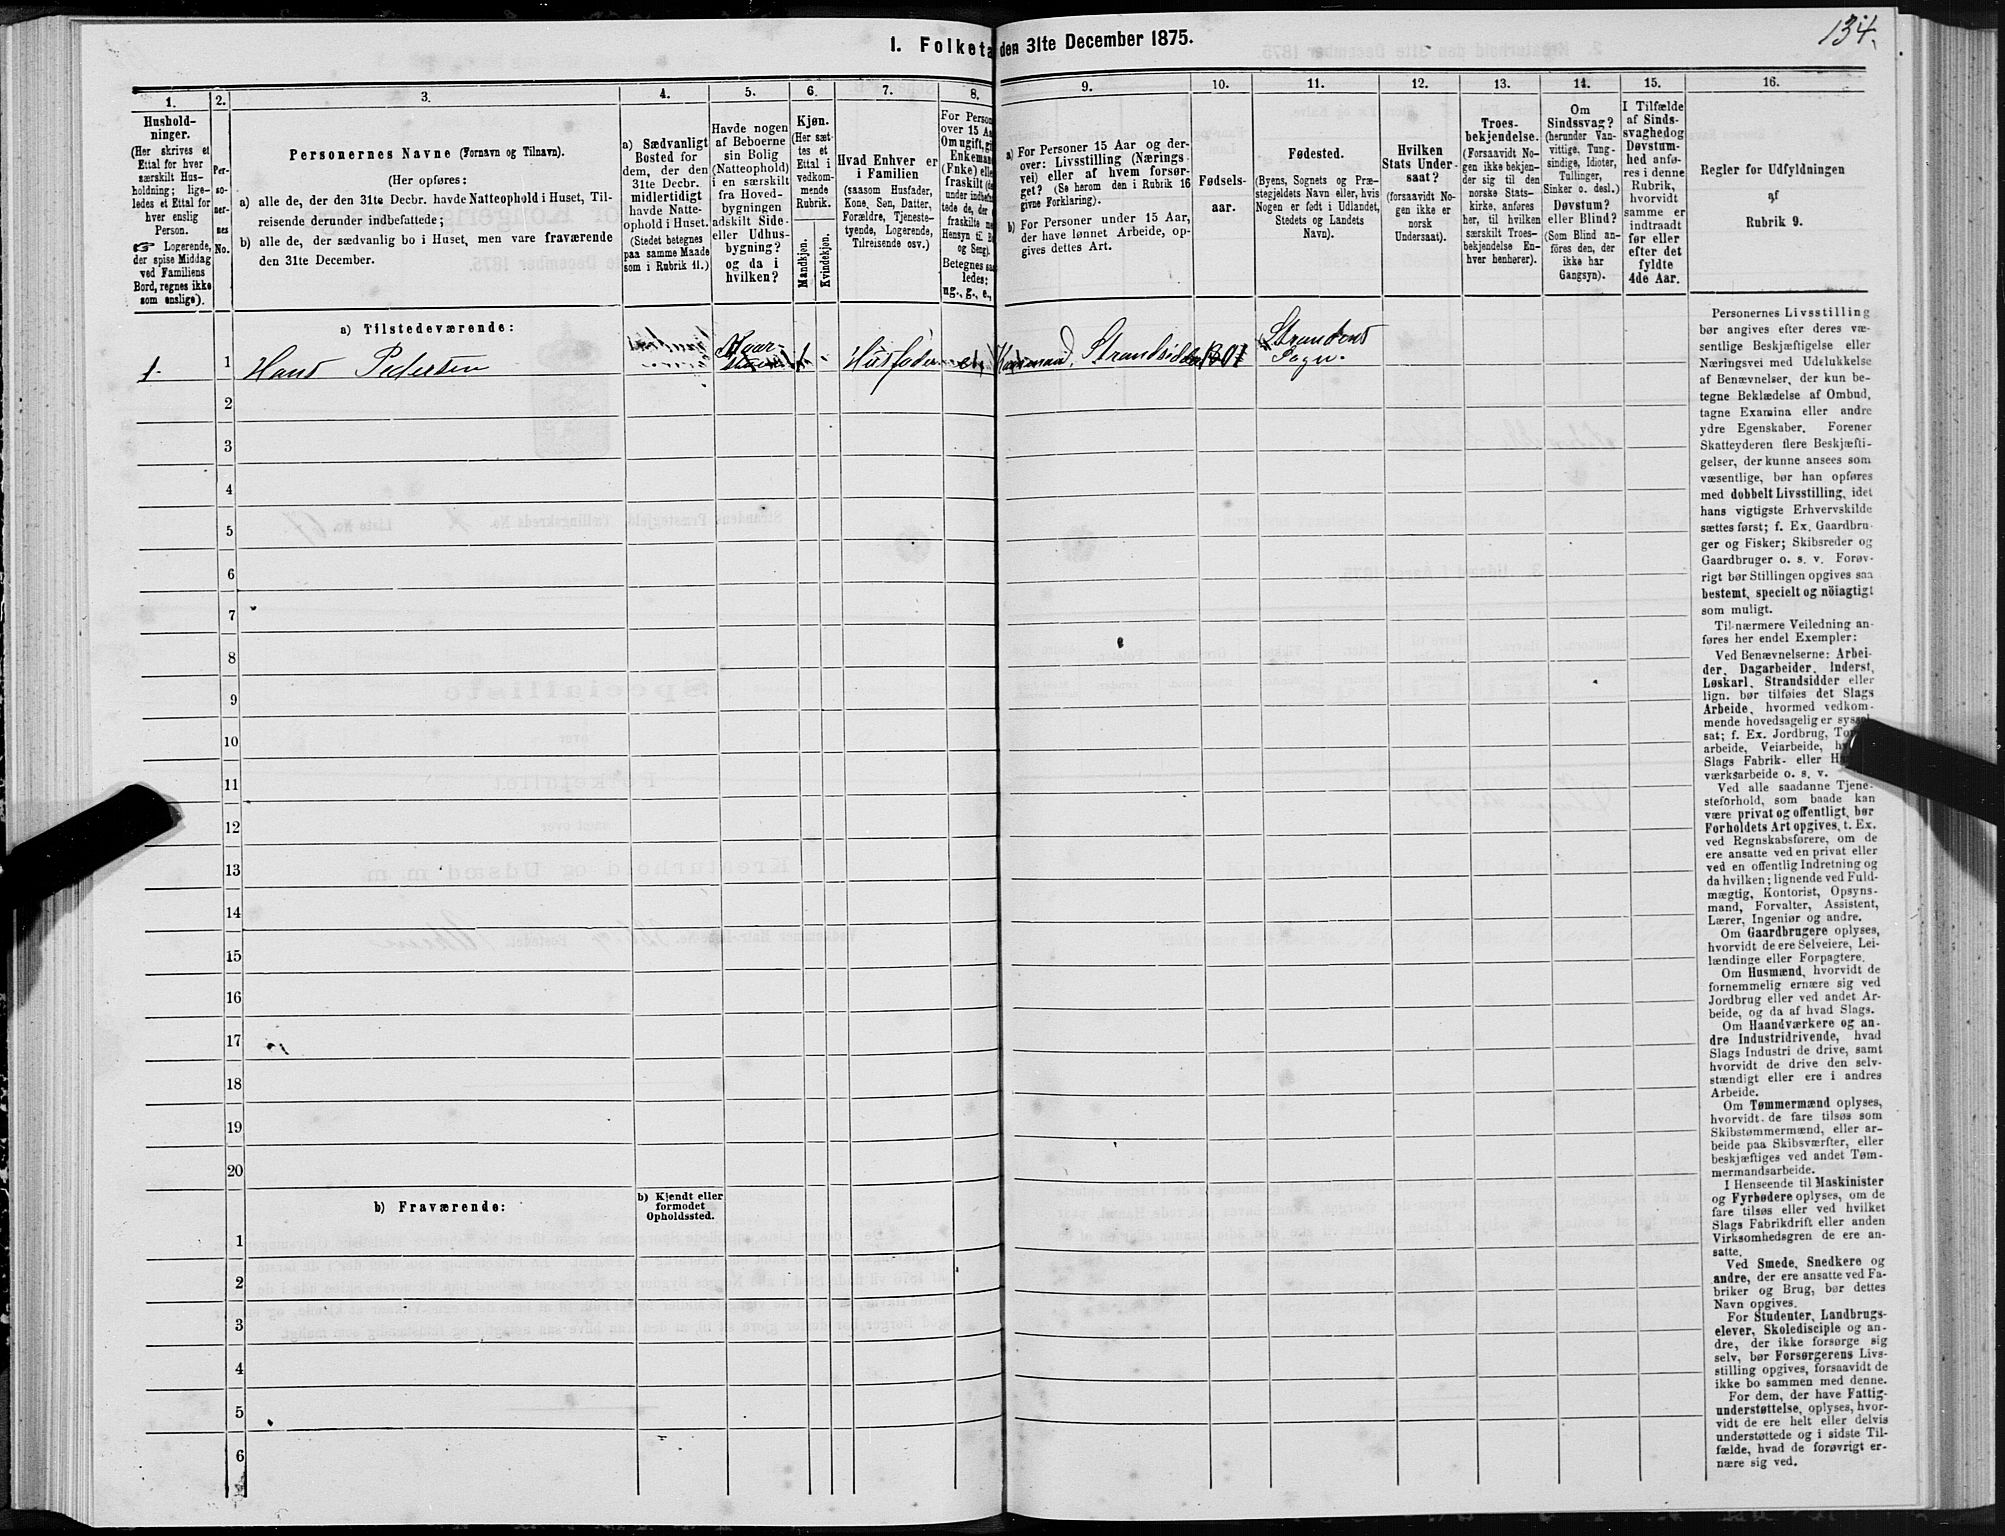 134.
I. Folketa den 31te December 1875.
1. 2. 3. 4. 5. 6. 7. 8. 9. 10. 11. 12. 13. 14. 15. 16.
Hushold-
ninger.
(Her skrives et
Ettal for hver
særskilt Hus-
holdning; lige-
ledes et Ettal for
hver enslig
Person.
☞ Logerende,
der spise Middag
ved Familiens
Bord, regnes ikke
som enslige).
Per-
so-
ner-
nes
No.
Personernes Navne (Fornavn og Tilnavn).
(Her opføres:
a) alle de, der den 31te Decbr. havde Natteophold i Huset, Til-
reisende derunder indbefattede;
b) alle de, der sædvanlig bo i Huset, men vare fraværende
den 31te December.
a) Sædvanligt
Bosted for
dem, der den
31te Decbr.
midlertidigt
havde Natte-
ophold i Huset.
(Stedet betegnes
paa samme Maade
som i Rubrik 11.)
Havde nogen
af Beboerne
sin Bolig
(Natteophold)
i en særskilt
fra Hoved-
bygningen
adskilt Side-
eller Udhus-
bygning?
og da i
hvilken?
Kjøn.
(Her sæt-
tes et
Ettal i
vedkom-
mende
Rubrik.
Mandkjøn.
Kvindekjøn.
Hvad Enhver er
i Familien
(saasom Husfader,
Kone, Søn, Datter,
Forældre, Tjeneste-
tyende, Logerende,
Tilreisende osv.)
For Person
over 15 Aa
Om ugift, gi
Enkemand
(Enke) elle
fraskilt (de
under indbefat-
tede de, der
fraskilte me
Hensyn til Bo
og Seng).
Betegnes saa
ledes:
ug., g., e.,
a) For Personer 15 Aar og der-
over: Livsstilling (Nærings
vei) eller af hvem forsør-
get? (Se herom den i Rubrik 16
givne Forklaring).
b) For Personer under 15 Aar,
der have lønnet Arbeide, op-
gives dettes Art.
Fødsels-
aar.
Fødested.
(Byens, Sognets og Præ-
stegjeldets Navn eller, hvis
Nogen er født i Udlandet,
Stedets og Landets
Navn).
Hvilken
Stats Under-
saat?
(forsaavidt No-
gen ikke er
norsk
Undersaat).
Troes-
bekjendelse.
(Forsaavidt No-
gen ikke bekjen-
der sig til den
norske Stats-
kirke, anføres
her, til hvilken
særskilt Troes-
bekjendelse En-
hver henhører).
Om
Sindssvag?
(herunder Van-
vittige, Tung-
sindige, Idioter,
Tullinger,
Sinker o. desl.)
Døvstum?
eller Blind?
(Som Blind an-
føres den, der
ikke har
Gangsyn).
I Tilfælde
af Sinds-
svaghed og
Døvstum-
hed anfø-
res i denne
Rubrik,
hvorvidt
samme er
indtraadt
før eller
efter det
fyldte
4de Aar.
Regler for Udfyldningen
af
Rubrik 9.
a) Tilstedeværende:
1. 1 Hans Pedersen Husfader Strandsidder 1801 Strandens
Sogn.
2
3
4
5
6
7
8
9
10
11
12
13
14
15
16
17
18
19
20
b) Fraværende:
b) Kjendt eller
formodet
Opholdssted.
1
2
3
4
5
6
Personernes Livsstilling
bør angives efter deres væ-
sentlige Beskjæftigelse eller
Næringsvei med Udelukkelse
af Benævnelser, der kun be-
tegne Beklædelse af Ombud,
tagne Examina eller andre
ydre Egenskaber. Forener
Skatteyderen flere Beskjæfti-
gelser, der kunne ansees som
væsentlige, bør han opføres
med dobbelt Livsstilling, idet
hans vigtigste Erhvervskilde
sættes først; f. Ex. Gaardbru-
ger og Fisker; Skibsreder og
Gaardbruger o. s. v. Forøv-
rigt bør Stillingen opgives saa
bestemt, specielt og nöiagtigt
som muligt.
Til nærmere Veiledning an-
føres her endel Exempler:
Ved Benævnelserne: Arbei-
der, Dagarbeider, Inderst,
Løskarl, Strandsidder eller
lign. bør tilføies det Slags
Arbeide, hvormed vedkom-
mende hovedsagelig er syssel
sat; f. Ex. Jordbrug,
arbeide, Veiarbeide,
Slags Fabrik- eller
værksarbeide o. s. v.
Ved alle saadanne Tjene-
steforhold, som baade kan
være privat og offentligt, bør
Forholdets Art opgives, t. Ex.
ved Regnskabsførere, om de
ere ansatte ved en privat eller
ved en offentlig Indretning og
da hvilken; lignende ved Fuld-
mægtig, Kontorist, Opsyns-
mand, Forvalter, Assistent,
Lærer, Ingeniør og andre.
Om Gaardbrugere oplyses,
hvorvidt de ere Selveiere, Lei-
lændinge eller Forpagtere.
Om Husmænd, hvorvidt de
fornemmelig ernære sig ved
Jordbrug eller ved andet Ar-
beide, og da af hvad Slags.
Om Haandværkere og an-
dre Industridrivende, hvad
Slags Industri de drive, samt
hvorvidt de drive den selv-
stændigt eller ere i andres
Arbeide.
Om Tømmermænd oplyses,
hvorvidt de fare tilsøs som
Skibstømmermænd, eller ar-
beide paa Skibsværfter, eller
beskjæftiges ved andet Tøm-
mermandsarbeide.
I Henseende til Maskinister
og Fyrbødere oplyses, om de
fare tilsøs eller ved hvilket
Slags Fabrikdrift eller anden
Virksomhedsgren de ere an-
satte.
Ved Smede, Snedkere og
andre, der ere ansatte ved Fa-
briker og Brug, bør dettes
Navn opgives.
For Studenter, Landbrugs-
elever, Skoledisciple og an-
dre, der ikke forsørge sig
selv, bør Forsørgerens Livs-
stilling opgives, forsaavidt de
ikke bo sammen med denne.
For dem, der have Fattig-
understøttelse, oplyses, hvor-
vidt de ere helt eller delvis
understøttede og i sidste Til-
fælde, hvad de forøvrigt er-
nære sig ved.